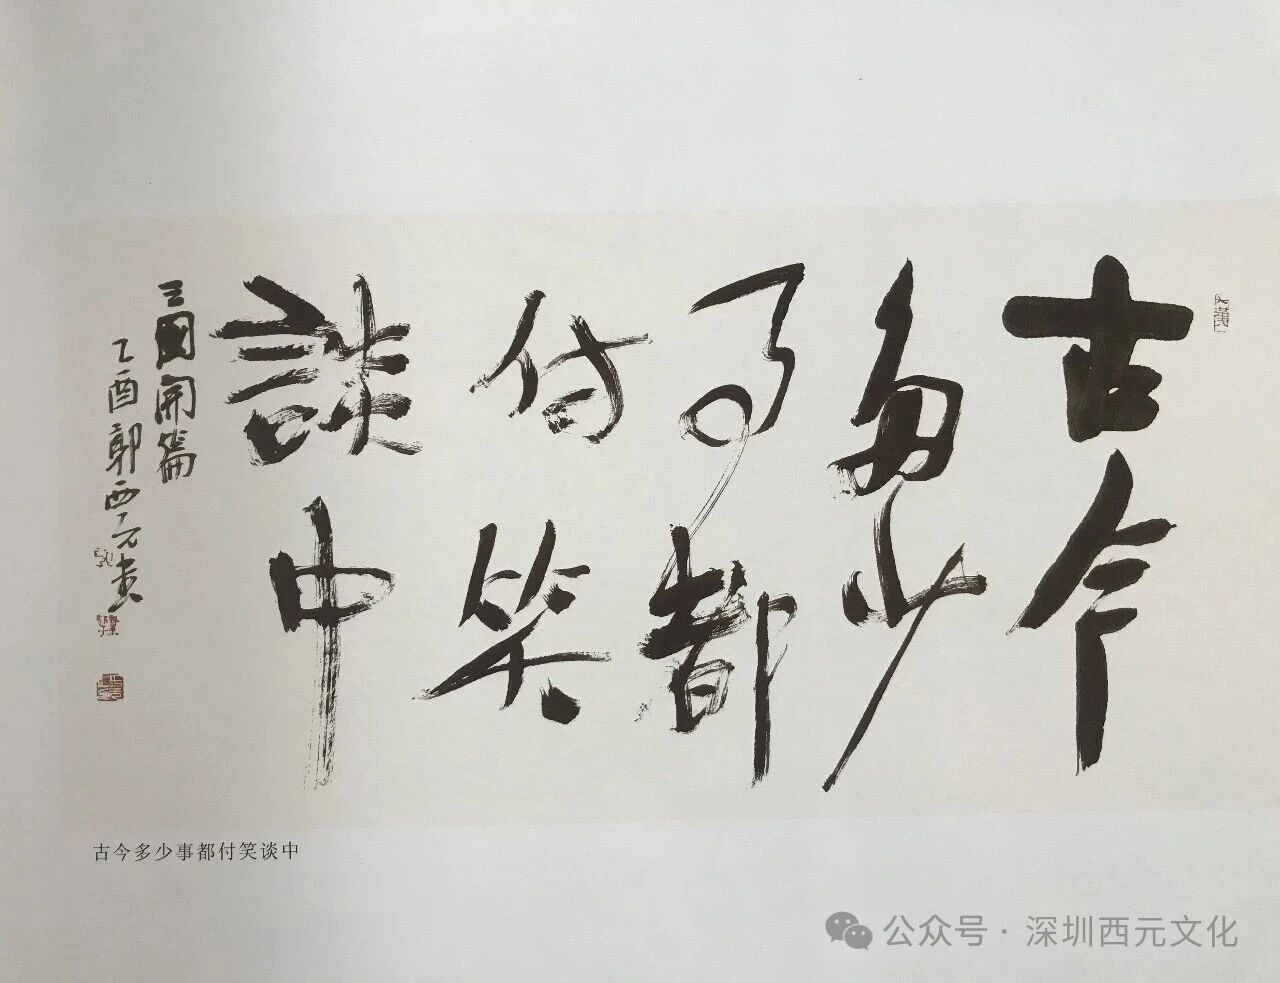 古今
多少
事都
付笑
談中
三國開篇
乙酉郭西元書
古今多少事都付笑谈中
公众号·深圳西元文化